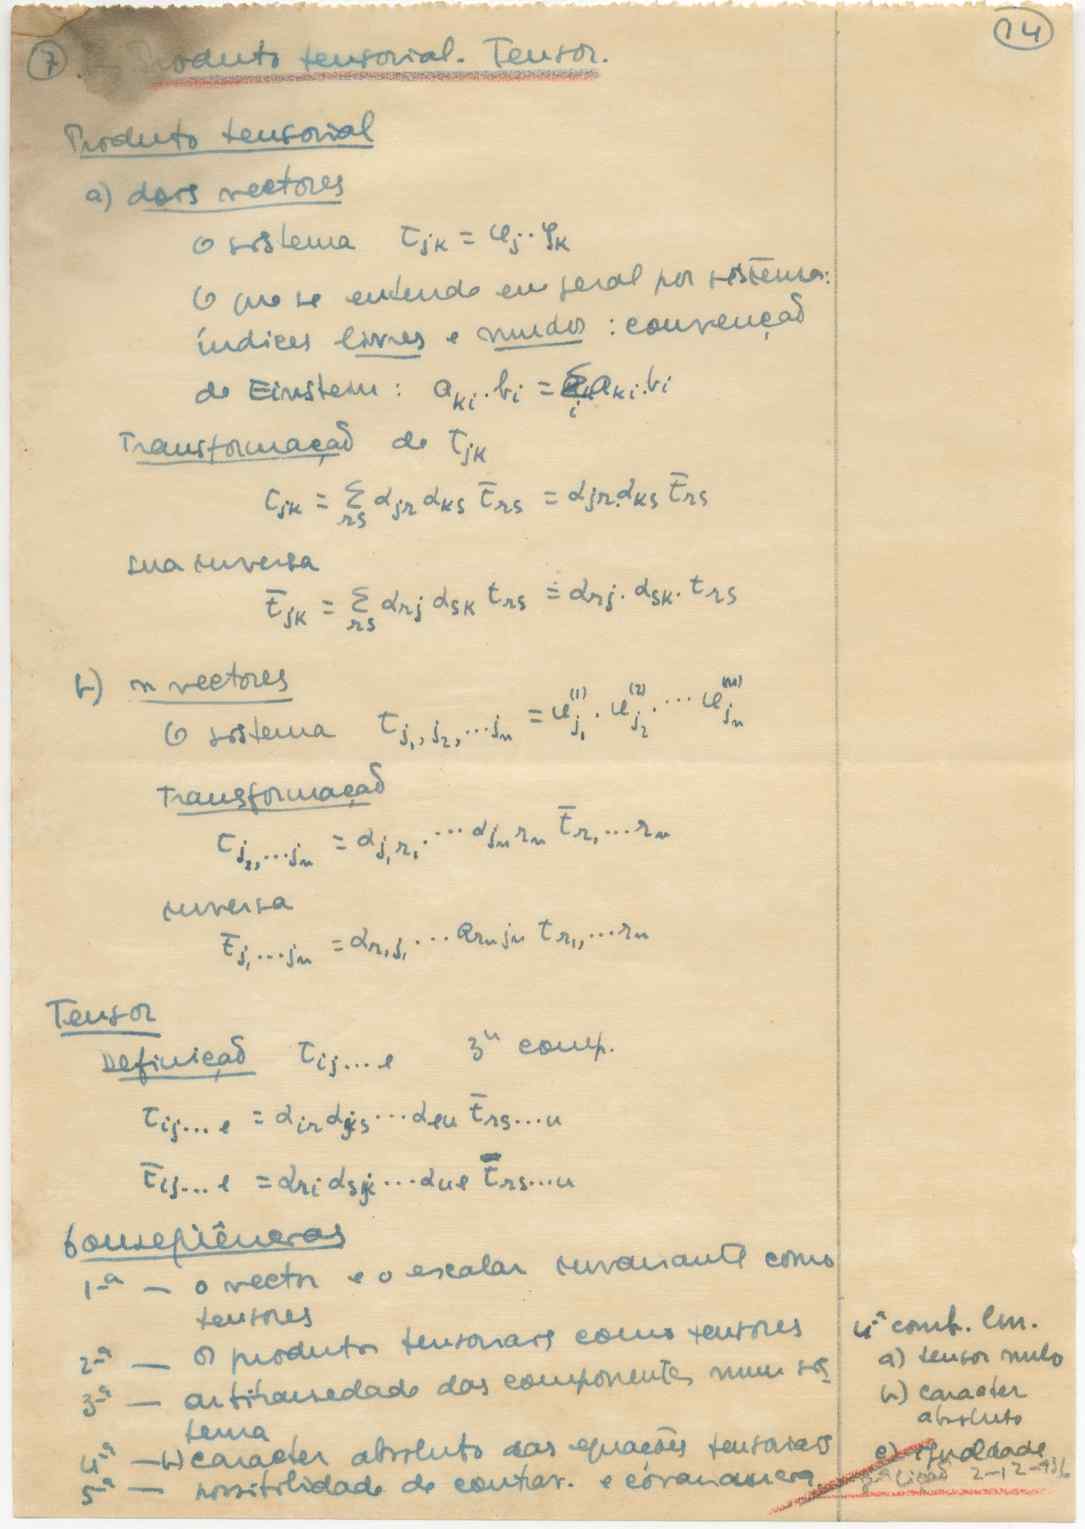 14
7. Produto tensorial. Tensor.
Produto tensorial
a) dois vectores
O sistema t_jk = φ_j · φ_k
O que se entende em geral por sistema:
índices livres e mudos : convenção
de Einstein : a_ki · b_i = Σ_i a_ki · b_i
Transformação de t_jk
t_jk = Σ_rs α_jr α_ks t̄_rs = α_jr · α_ks t̄_rs
sua inversa
t̄_jk = Σ_rs α_rj α_sk t_rs = α_rj · α_sk · t_rs
b) n vectores
O sistema t_j₁,j₂,...j_n = φ_j₁^(1) · φ_j₂^(2) · ... φ_j_n^(n)
Transformação
t_j₁,...j_n = α_j₁r₁ · ... α_j_n r_n t̄_r₁,...r_n
inversa
t̄_j₁...j_n = α_r₁j₁ ... α_r_n j_n t_r₁,...r_n
Tensor
Definição t_ij...l 3ⁿ comp.
t_ij...l = α_ir α_js ... α_lu t̄_rs...u
t̄_ij...l = α_ri α_sj ... α_ul t_rs...u
Conseqüências
1.ª — o vector e o escalar invariante como
tensores
2.ª — os produtos tensoriais como tensores
3.ª — arbitrariedade das componentes num sis
tema
4.ª — b) caracter absoluto das equações tensoriais
5.ª — possibilidade de contrav. e covariancia
4.ª comb. lin.
a) tensor nulo
b) caracter
absoluto
c) igualdade
lição 2-12-936